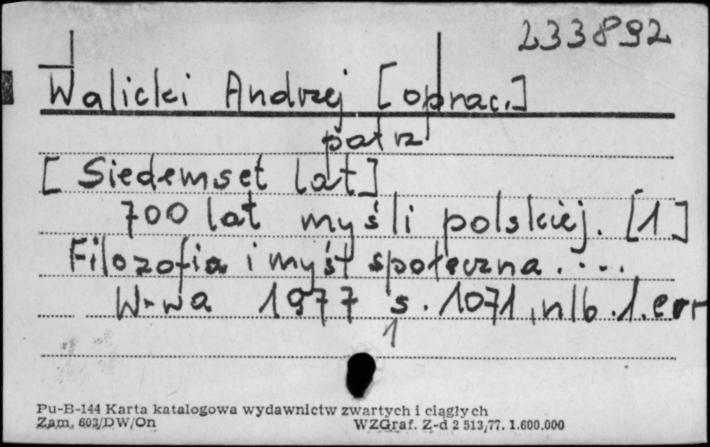 233892
Walicki Andrzej [oprac.]
patrz
[Siedemset lat]
700 lat myśli polskiej. [1]
Filozofia i myśl społeczna. ....
W-wa 1977 s. 1071, nlb. 1. err
1
Pu-B-144 Karta katalogowa wydawnictw zwartych i ciągłych
Zam. 603/DW/On WZGraf. Z-d 2 513/77. 1.600.000